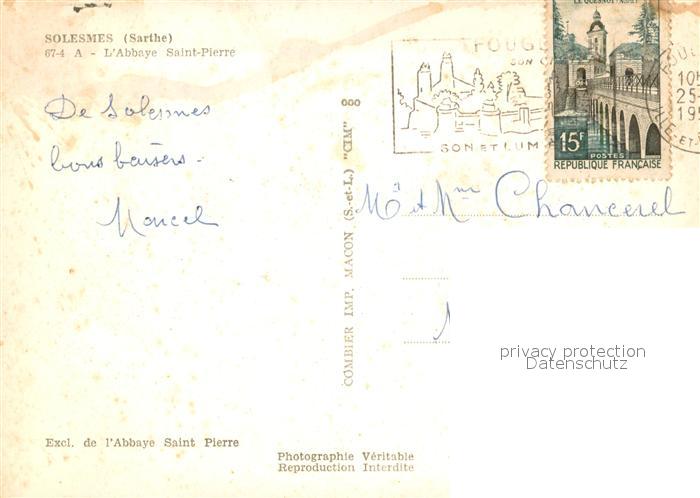 SOLESMES (Sarthe)
67-4 A - L'Abbaye Saint-Pierre
De Solesmes
bons baisers -
Marcel
Excl. de l'Abbaye Saint Pierre
Photographie Véritable
Reproduction Interdite
COMBIER IMP. MACON (S.-et-L.) "CIM"
FOUG
SON CH
SON ET LUM
LE QUESNOY (NORD)
15F
POSTES
REPUBLIQUE FRANÇAISE
10H
25-
19
Mr et Mme Chancerel
privacy protection
Datenschutz